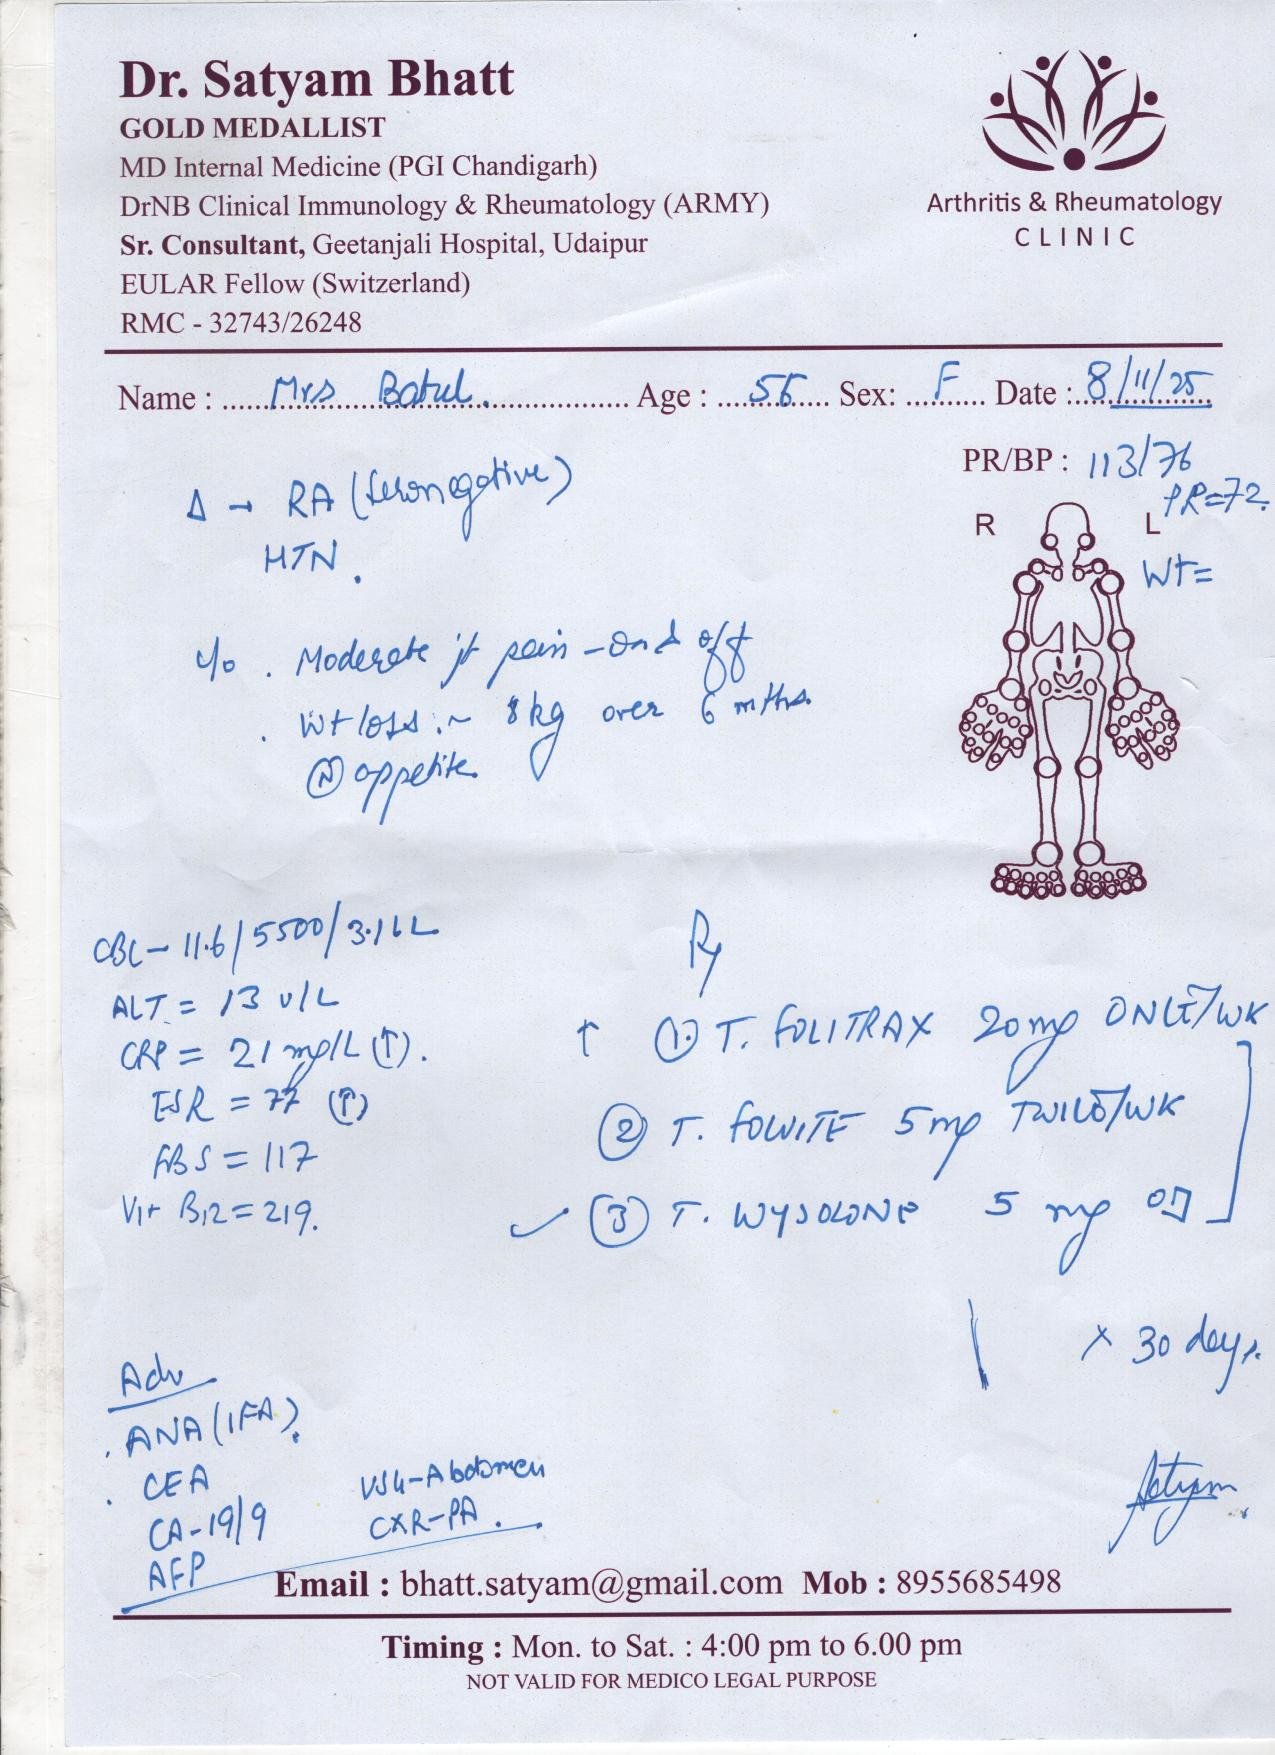 Dr. Satyam Bhatt
GOLD MEDALLIST
MD Internal Medicine (PGI Chandigarh)
DrNB Clinical Immunology & Rheumatology (ARMY)
Sr. Consultant, Geetanjali Hospital, Udaipur
EULAR Fellow (Switzerland)
RMC - 32743/26248
Arthritis & Rheumatology
CLINIC
Name : Mrs Batul. Age : 56 Sex: F Date : 8/11/25
PR/BP : 113/76
PR=72.
R L
Wt=
Δ → RA (seronegative)
HTN.
c/o . Moderate jt pain - On & off
. Wt loss :~ 8 kg over 6 mths.
(N) appetite.
CBC - 11.6/5500/3.16L
ALT = 13 U/L
CRP = 21 mg/L (↑).
ESR = 77 (↑)
FBS = 117
Vit B12 = 219.
Rx
↑ (1.) T. FOLITRAX 20 mg ONCE/WK
(2) T. FOLVITE 5 mg TWICE/WK
✓ (3) T. WYSOLONE 5 mg OD
x 30 days.
Adv
. ANA (IFA).
. CEA
CA-19/9
AFP
USG-Abdomen
CXR-PA.
Satyam
Email : bhatt.satyam@gmail.com Mob : 8955685498
Timing : Mon. to Sat. : 4:00 pm to 6.00 pm
NOT VALID FOR MEDICO LEGAL PURPOSE